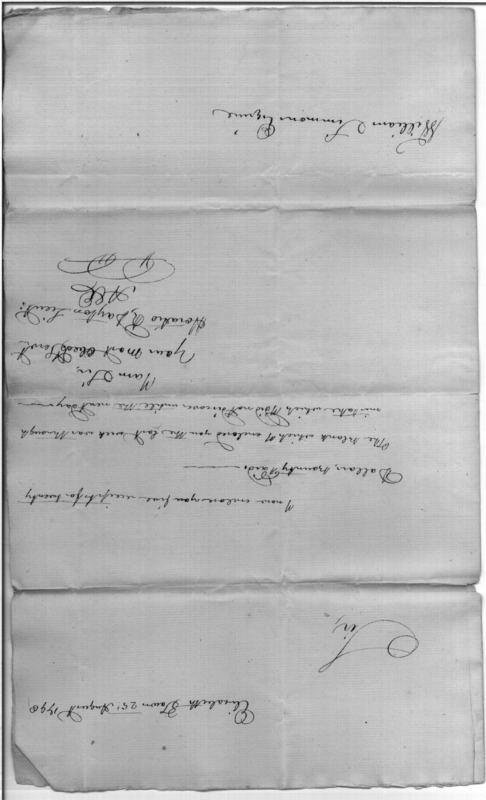 Elisabeth Town 25: August 1798
Sir,
I now enclose you five receipts for twenty
Dollars bounty Paid
The blank which I enclosed you the last week was through
mistake which I did not discover untill the next day
I am Sir,
Your most Obed.t Serv.t
Horatio R Dayton Lieut:
William Simmons Esquire